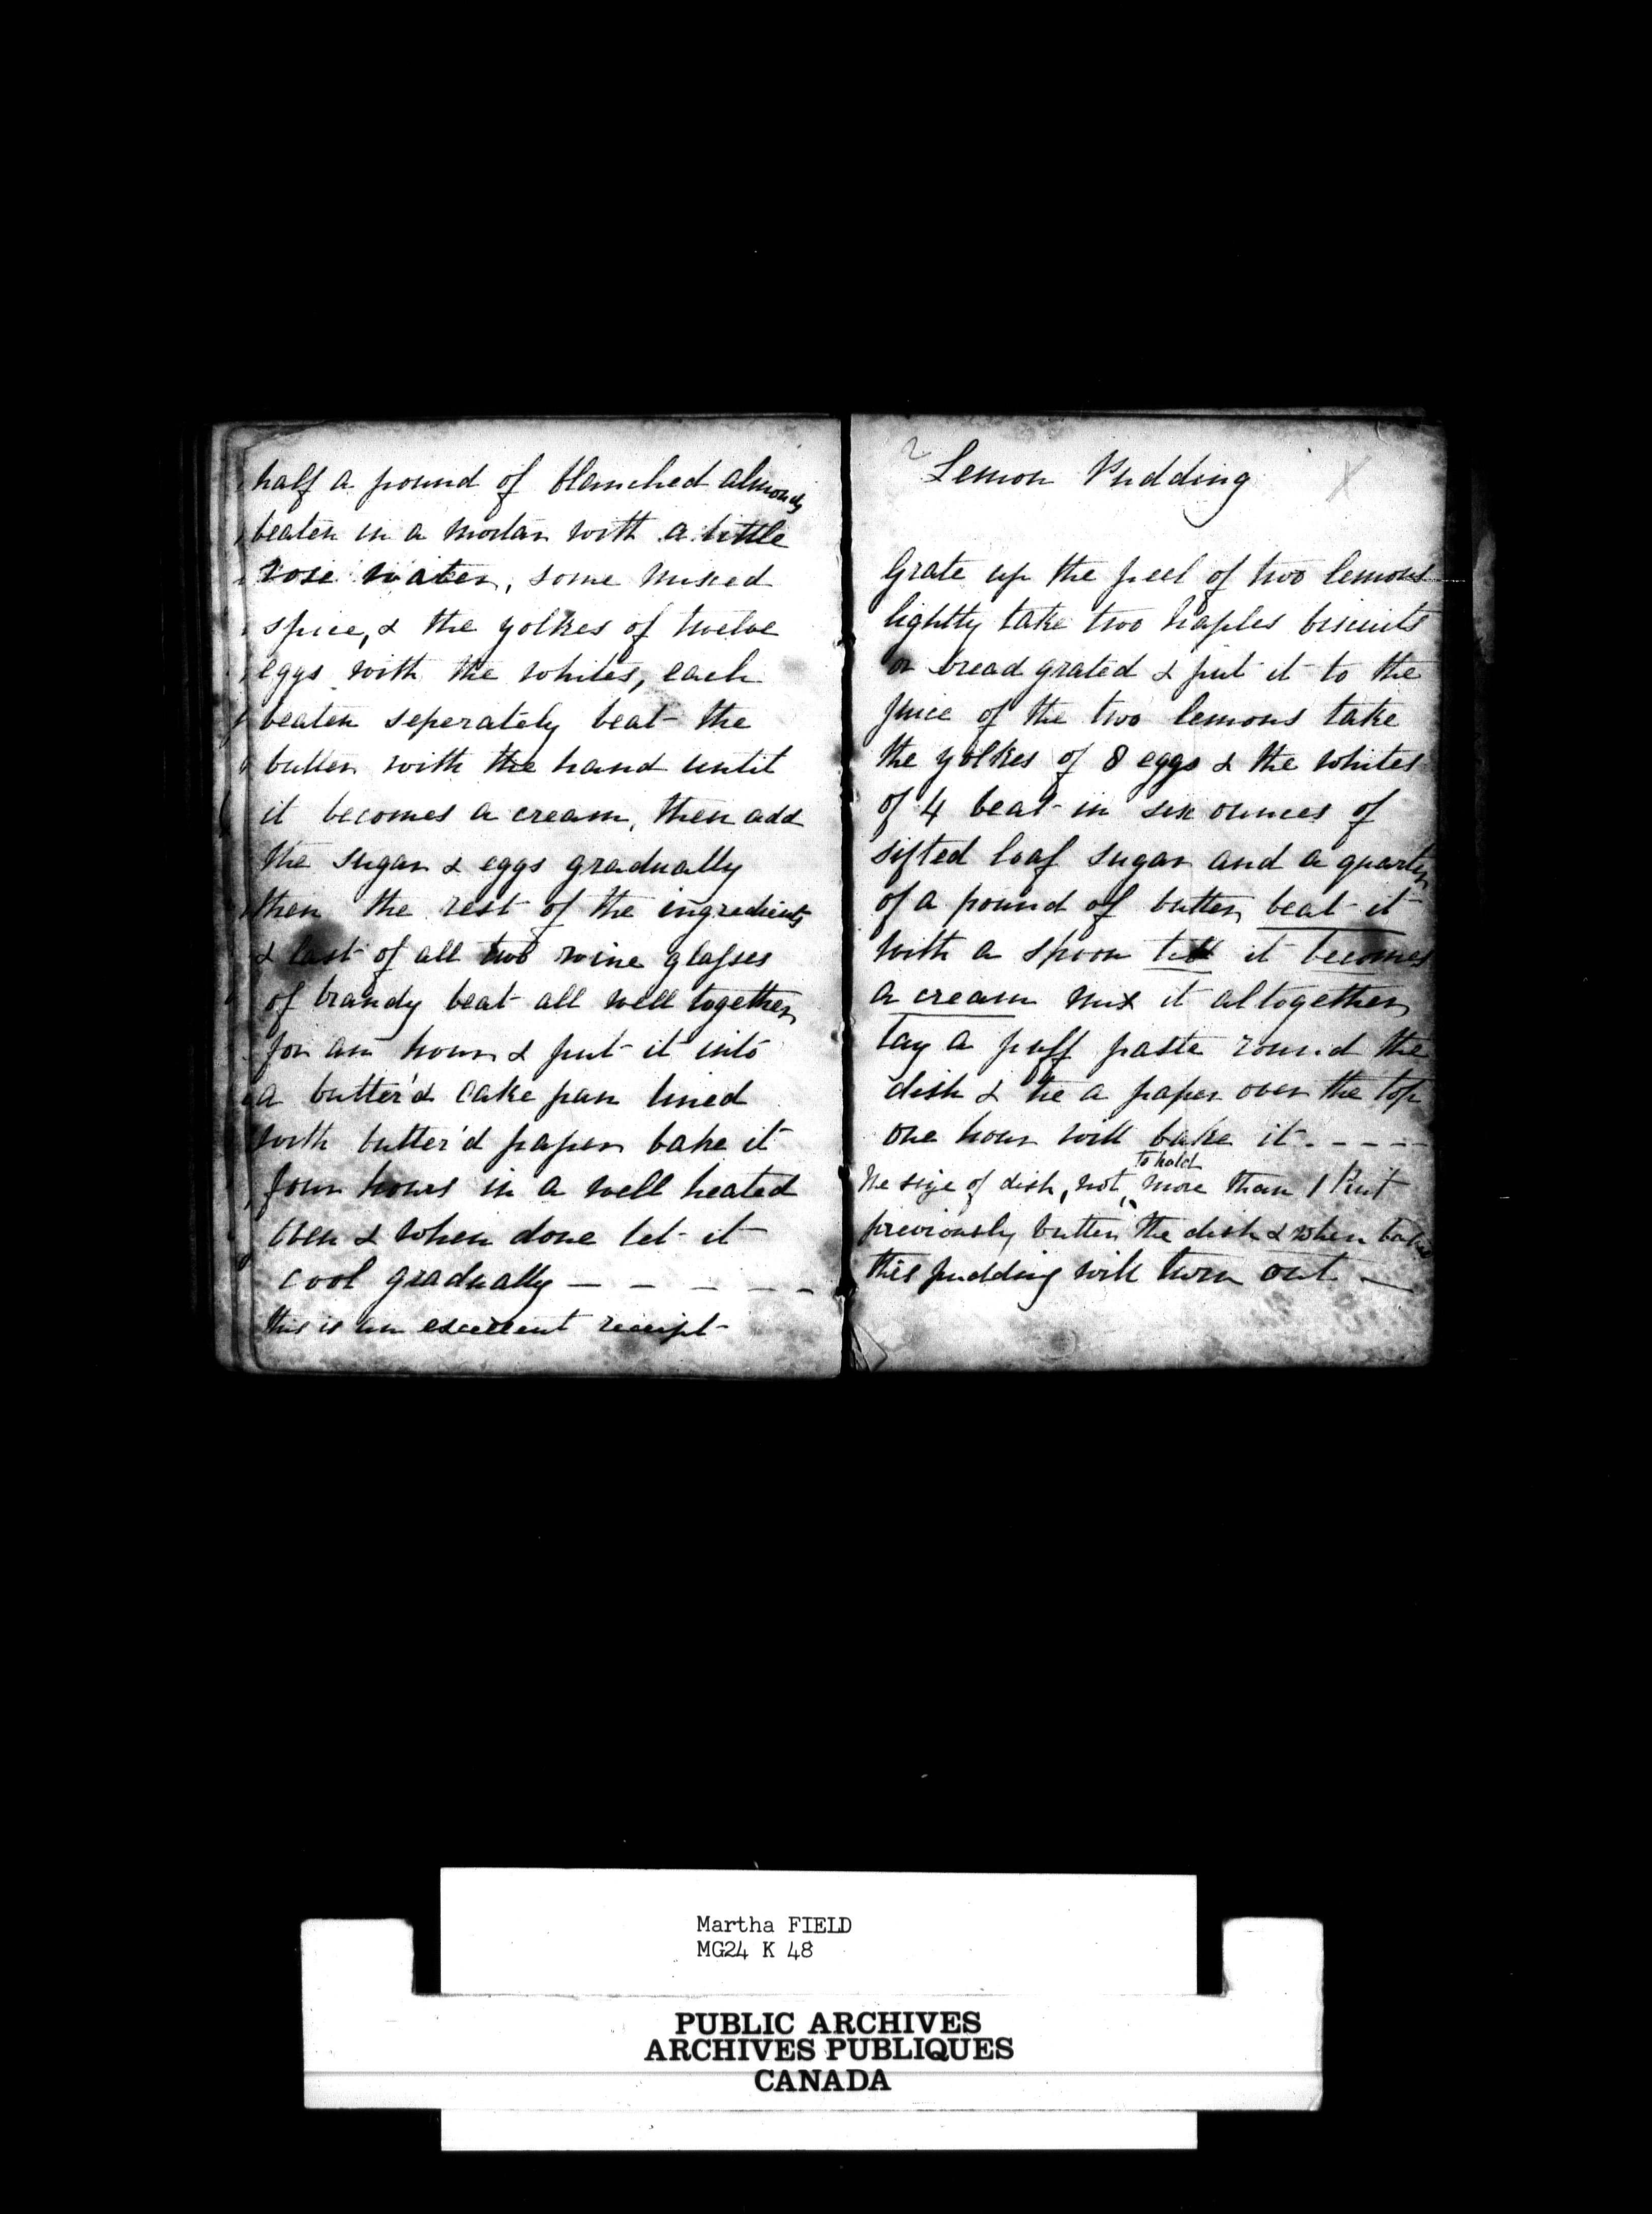 half a pound of blanched almonds
beaten in a mortar with a little
rose water, some mixed
spice, & the yolkes of twelve
eggs with the whites, each
beaten seperately beat the
butter with the hand until
it becomes a cream, then add
the sugar & eggs gradually
then the rest of the ingredients
& last of all two wine glasses
of brandy beat all well together
for an hour & put it into
a butter'd cake pan lined
with butter'd paper bake it
four hours in a well heated
oven & when done let it
cool gradually — — — — —
this is an excellent receipt
2 Lemon Pudding X
Grate up the peel of two lemons
lightly take two naples biscuits
or bread grated & put it to the
juice of the two lemons take
the yolkes of 8 eggs & the whites
of 4 beat in six ounces of
sifted loaf sugar and a quarter
of a pound of butter, beat it
with a spoon till it becomes
a cream mix it altogether
lay a puff paste round the
dish & tie a paper over the top
one hour will bake it - - - - -
to hold
The size of dish, not more than 1 Pint
previously butter the dish & when baked
this pudding will turn out —
Martha FIELD
MG24 K 48
PUBLIC ARCHIVES
ARCHIVES PUBLIQUES
CANADA